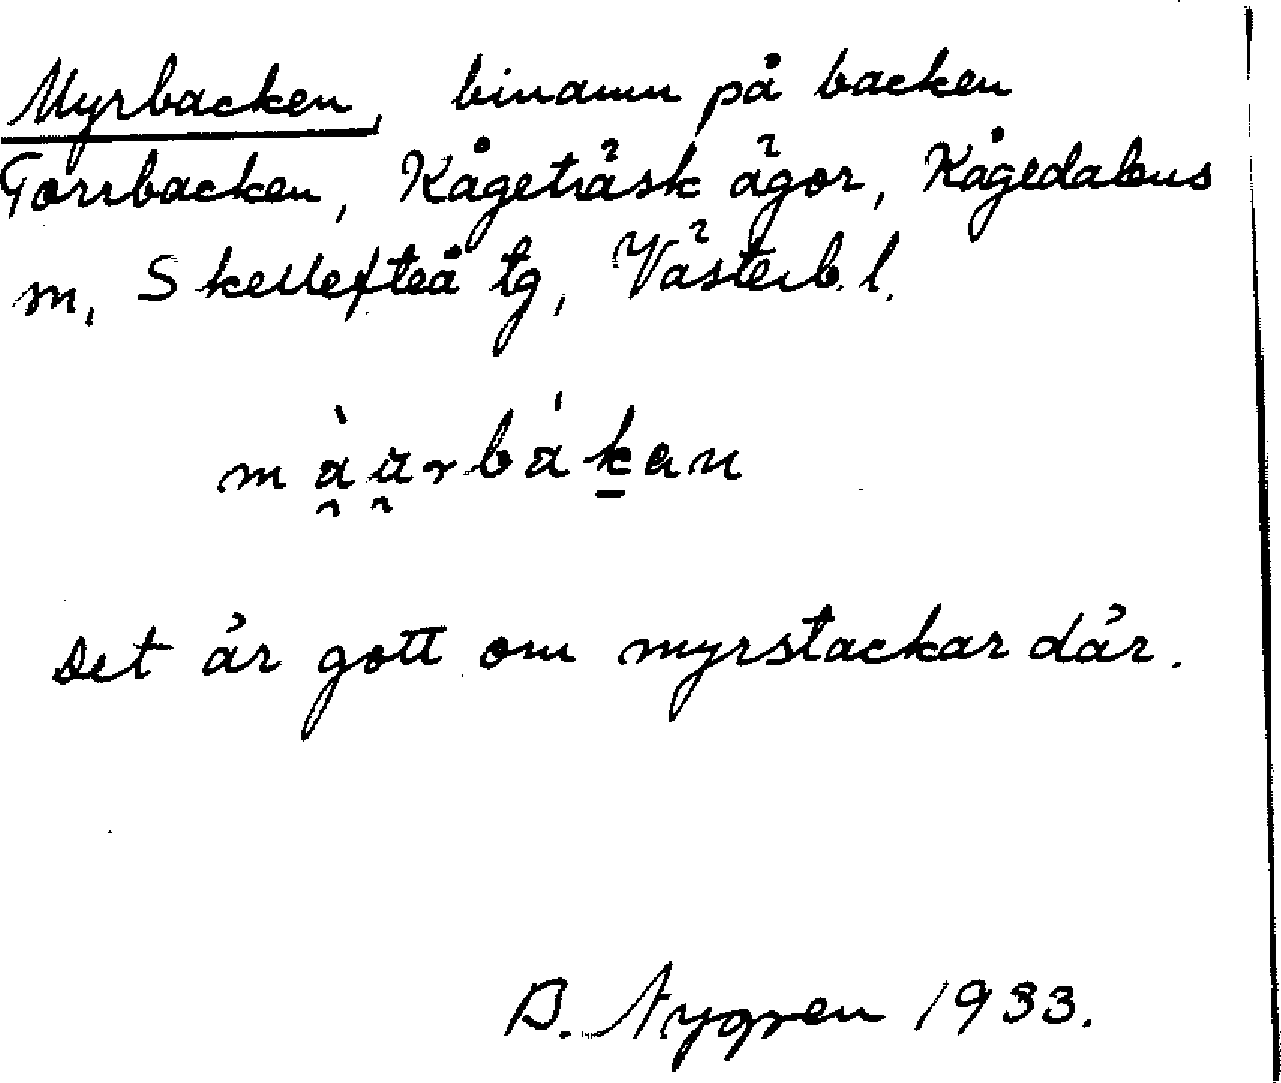 Myrbacken, binamn på backen
Torrbacken, Kågeträsk ägor, Kågedalens
m, Skellefteå tg, Västerb. l.
mà̯a̯rbáḵan
Det är gott om myrstackar där.
B. Nygren 1933.